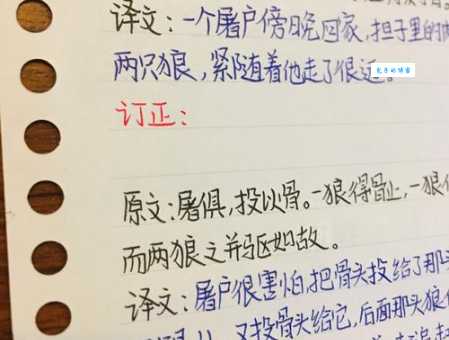 译文：一个屠户傍晚回家，担子里的
两只狼，紧随着他走了很远。
订正：
原文：屠俱，投以骨。一狼得骨止，一狼
而两狼之并驱如故。
译文：屠户很害怕，把骨头投给了那
又投骨头给它，后面那头狼